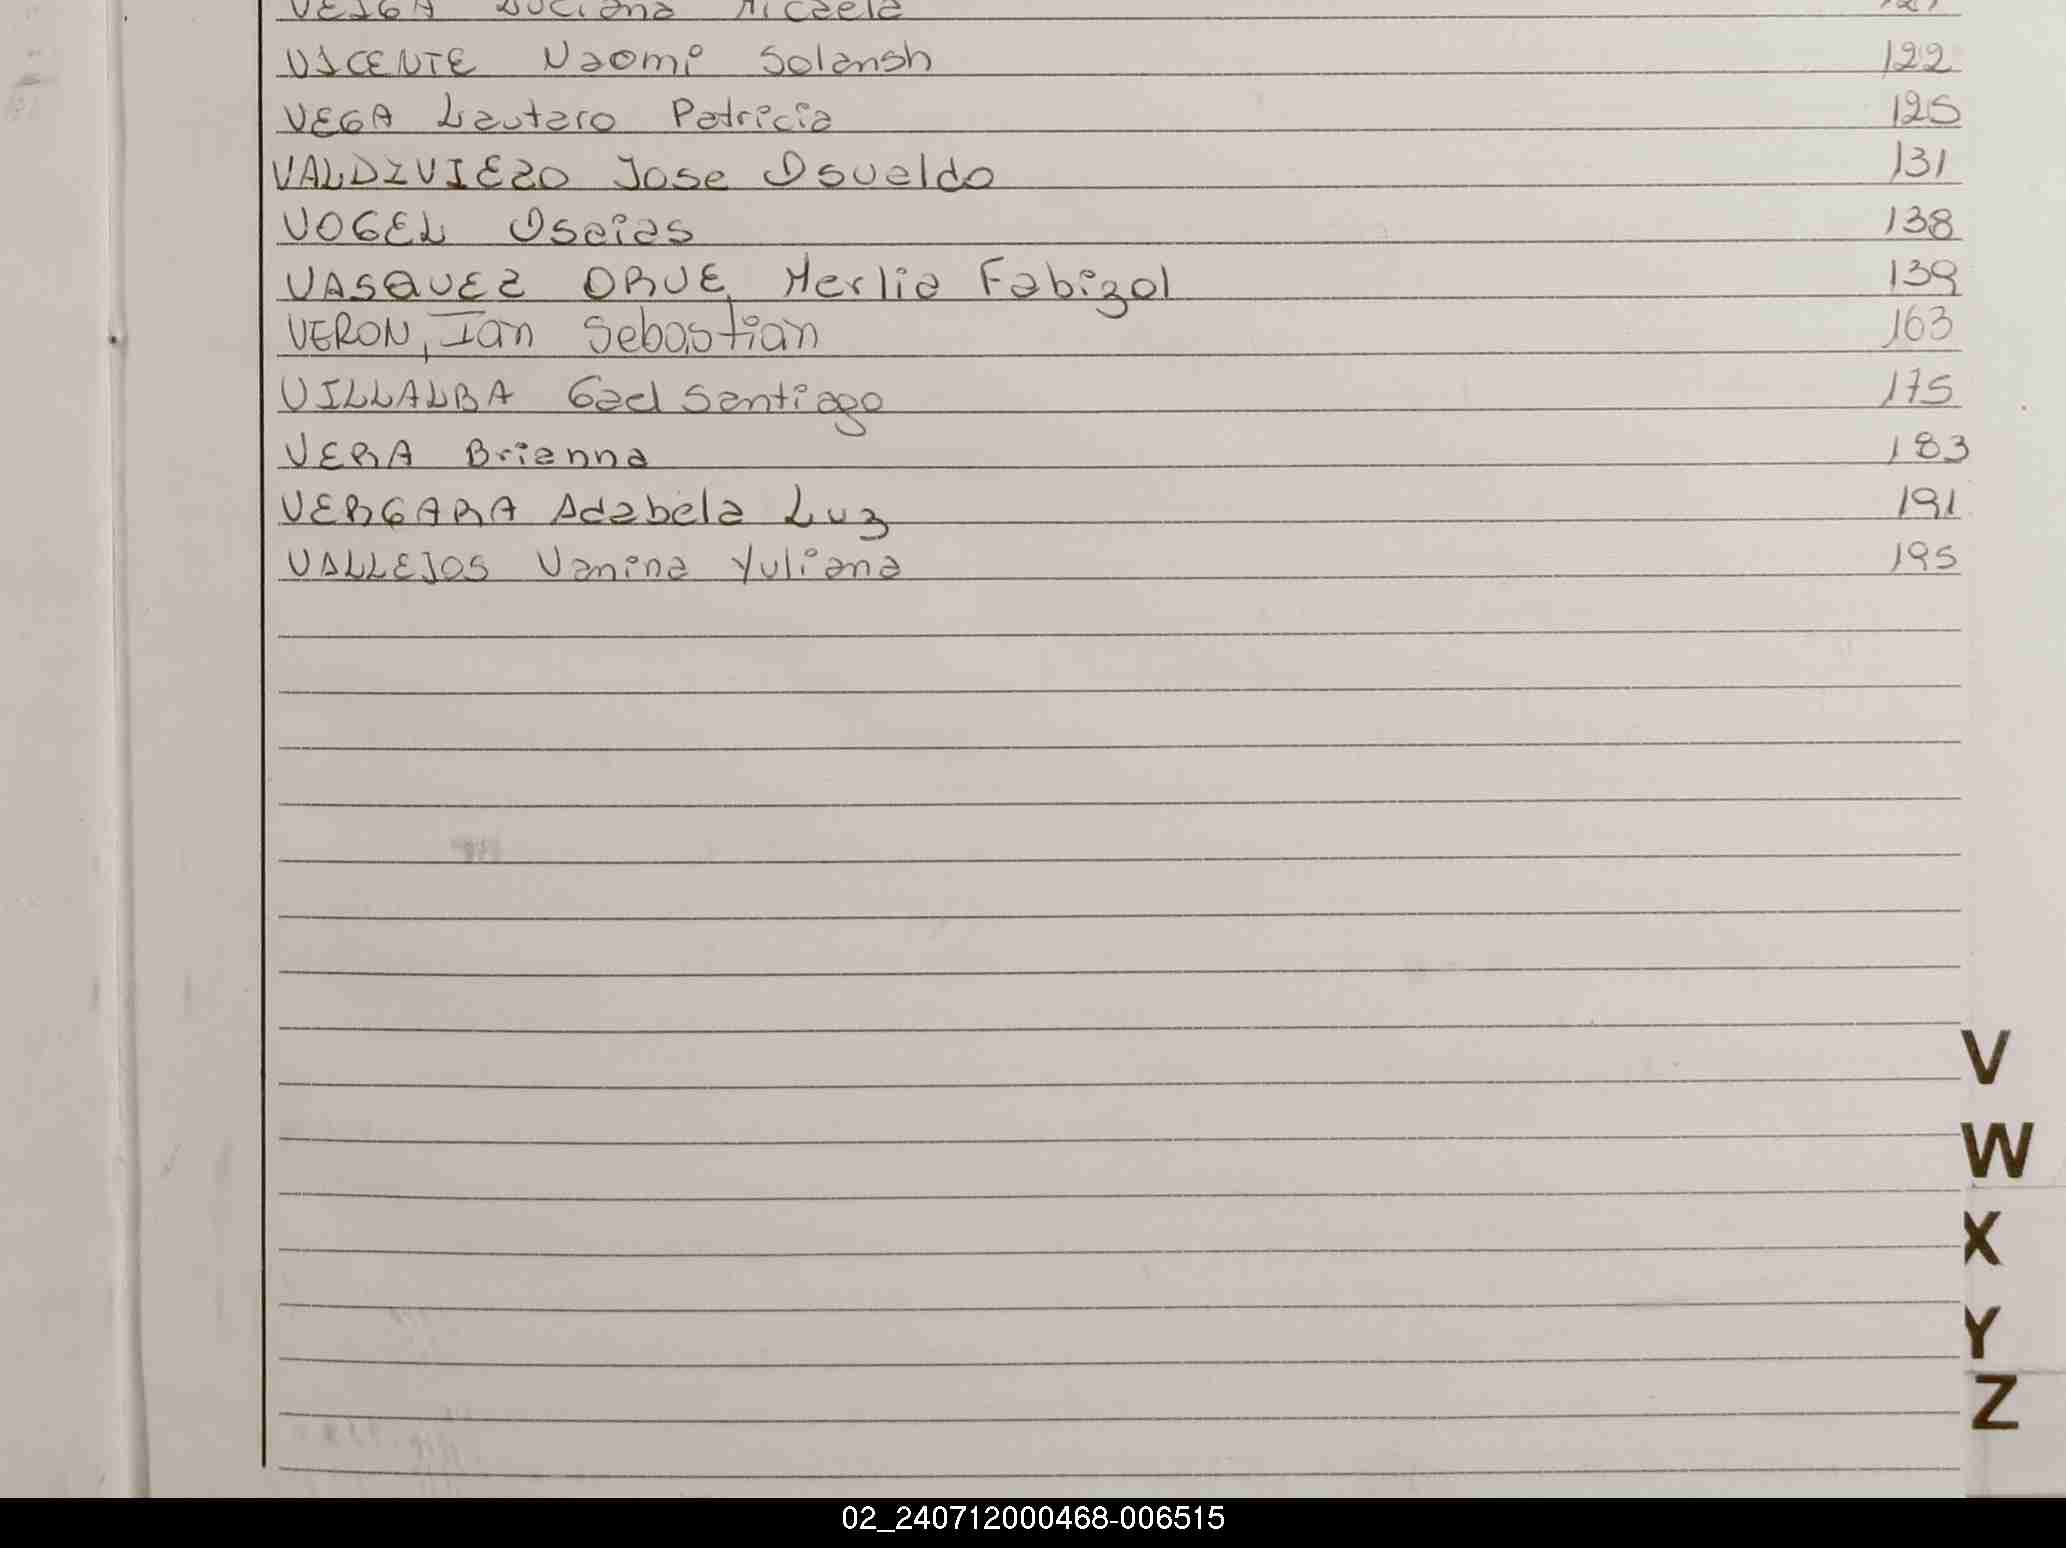 VEIGA Luciana Micaela 121
VICENTE Naomi Solansh 122
VEGA Lautaro Patricia 125
VALDIVIEZO Jose Osvaldo 131
VOGEL Osaias 138
VASQUEZ ORUE, Merlia Fabizol 139
VERON, Ian Sebastian 163
VILLALBA Gael Santiago 175
VERA Brianna 183
VERGARA Adabela Luz 191
VALLEJOS Vanina Yuliana 195
V
W
X
Y
Z
02_240712000468-006515